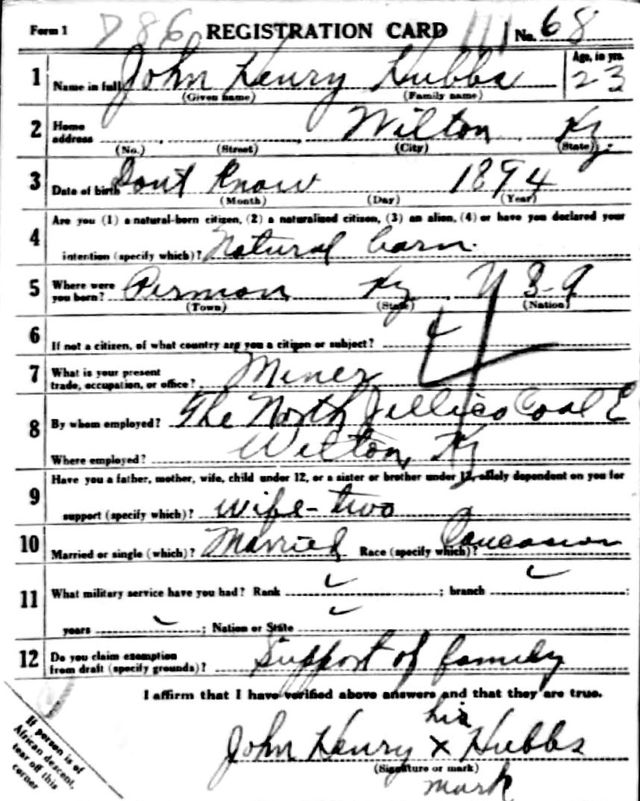 Form 1 D86 REGISTRATION CARD No. 68
1 Name in full John Henry Hubbs Age, in yrs. 23
(Given name) (Family name)
2 Home address Wilton Ky.
(No.) (Street) (City) (State)
3 Date of birth Dont Know 1894
(Month) (Day) (Year)
Are you (1) a natural-born citizen, (2) a naturalized citizen, (3) an alien, (4) or have you declared your
4 intention (specify which)? Natural barn
5 Where were you born? Permon Ky U S-A
(Town) (State) (Nation)
6 If not a citizen, of what country are you a citizen or subject?
7 What is your present trade, occupation, or office? Miner
8 By whom employed? The North Jellico Coal
Where employed? Wilton, Ky
Have you a father, mother, wife, child under 12, or a sister or brother under 12, solely dependent on you for
9 support (specify which)? wife - two
10 Married or single (which)? Married Race (specify which)? Caucasion
11 What military service have you had? Rank ; branch ;
years ; Nation or State
12 Do you claim exemption from draft (specify grounds)? Support of family
I affirm that I have verified above answers and that they are true.
his
John Henry x Hubbs
(Signature or mark)
mark
If person is of
African descent,
tear off this
corner